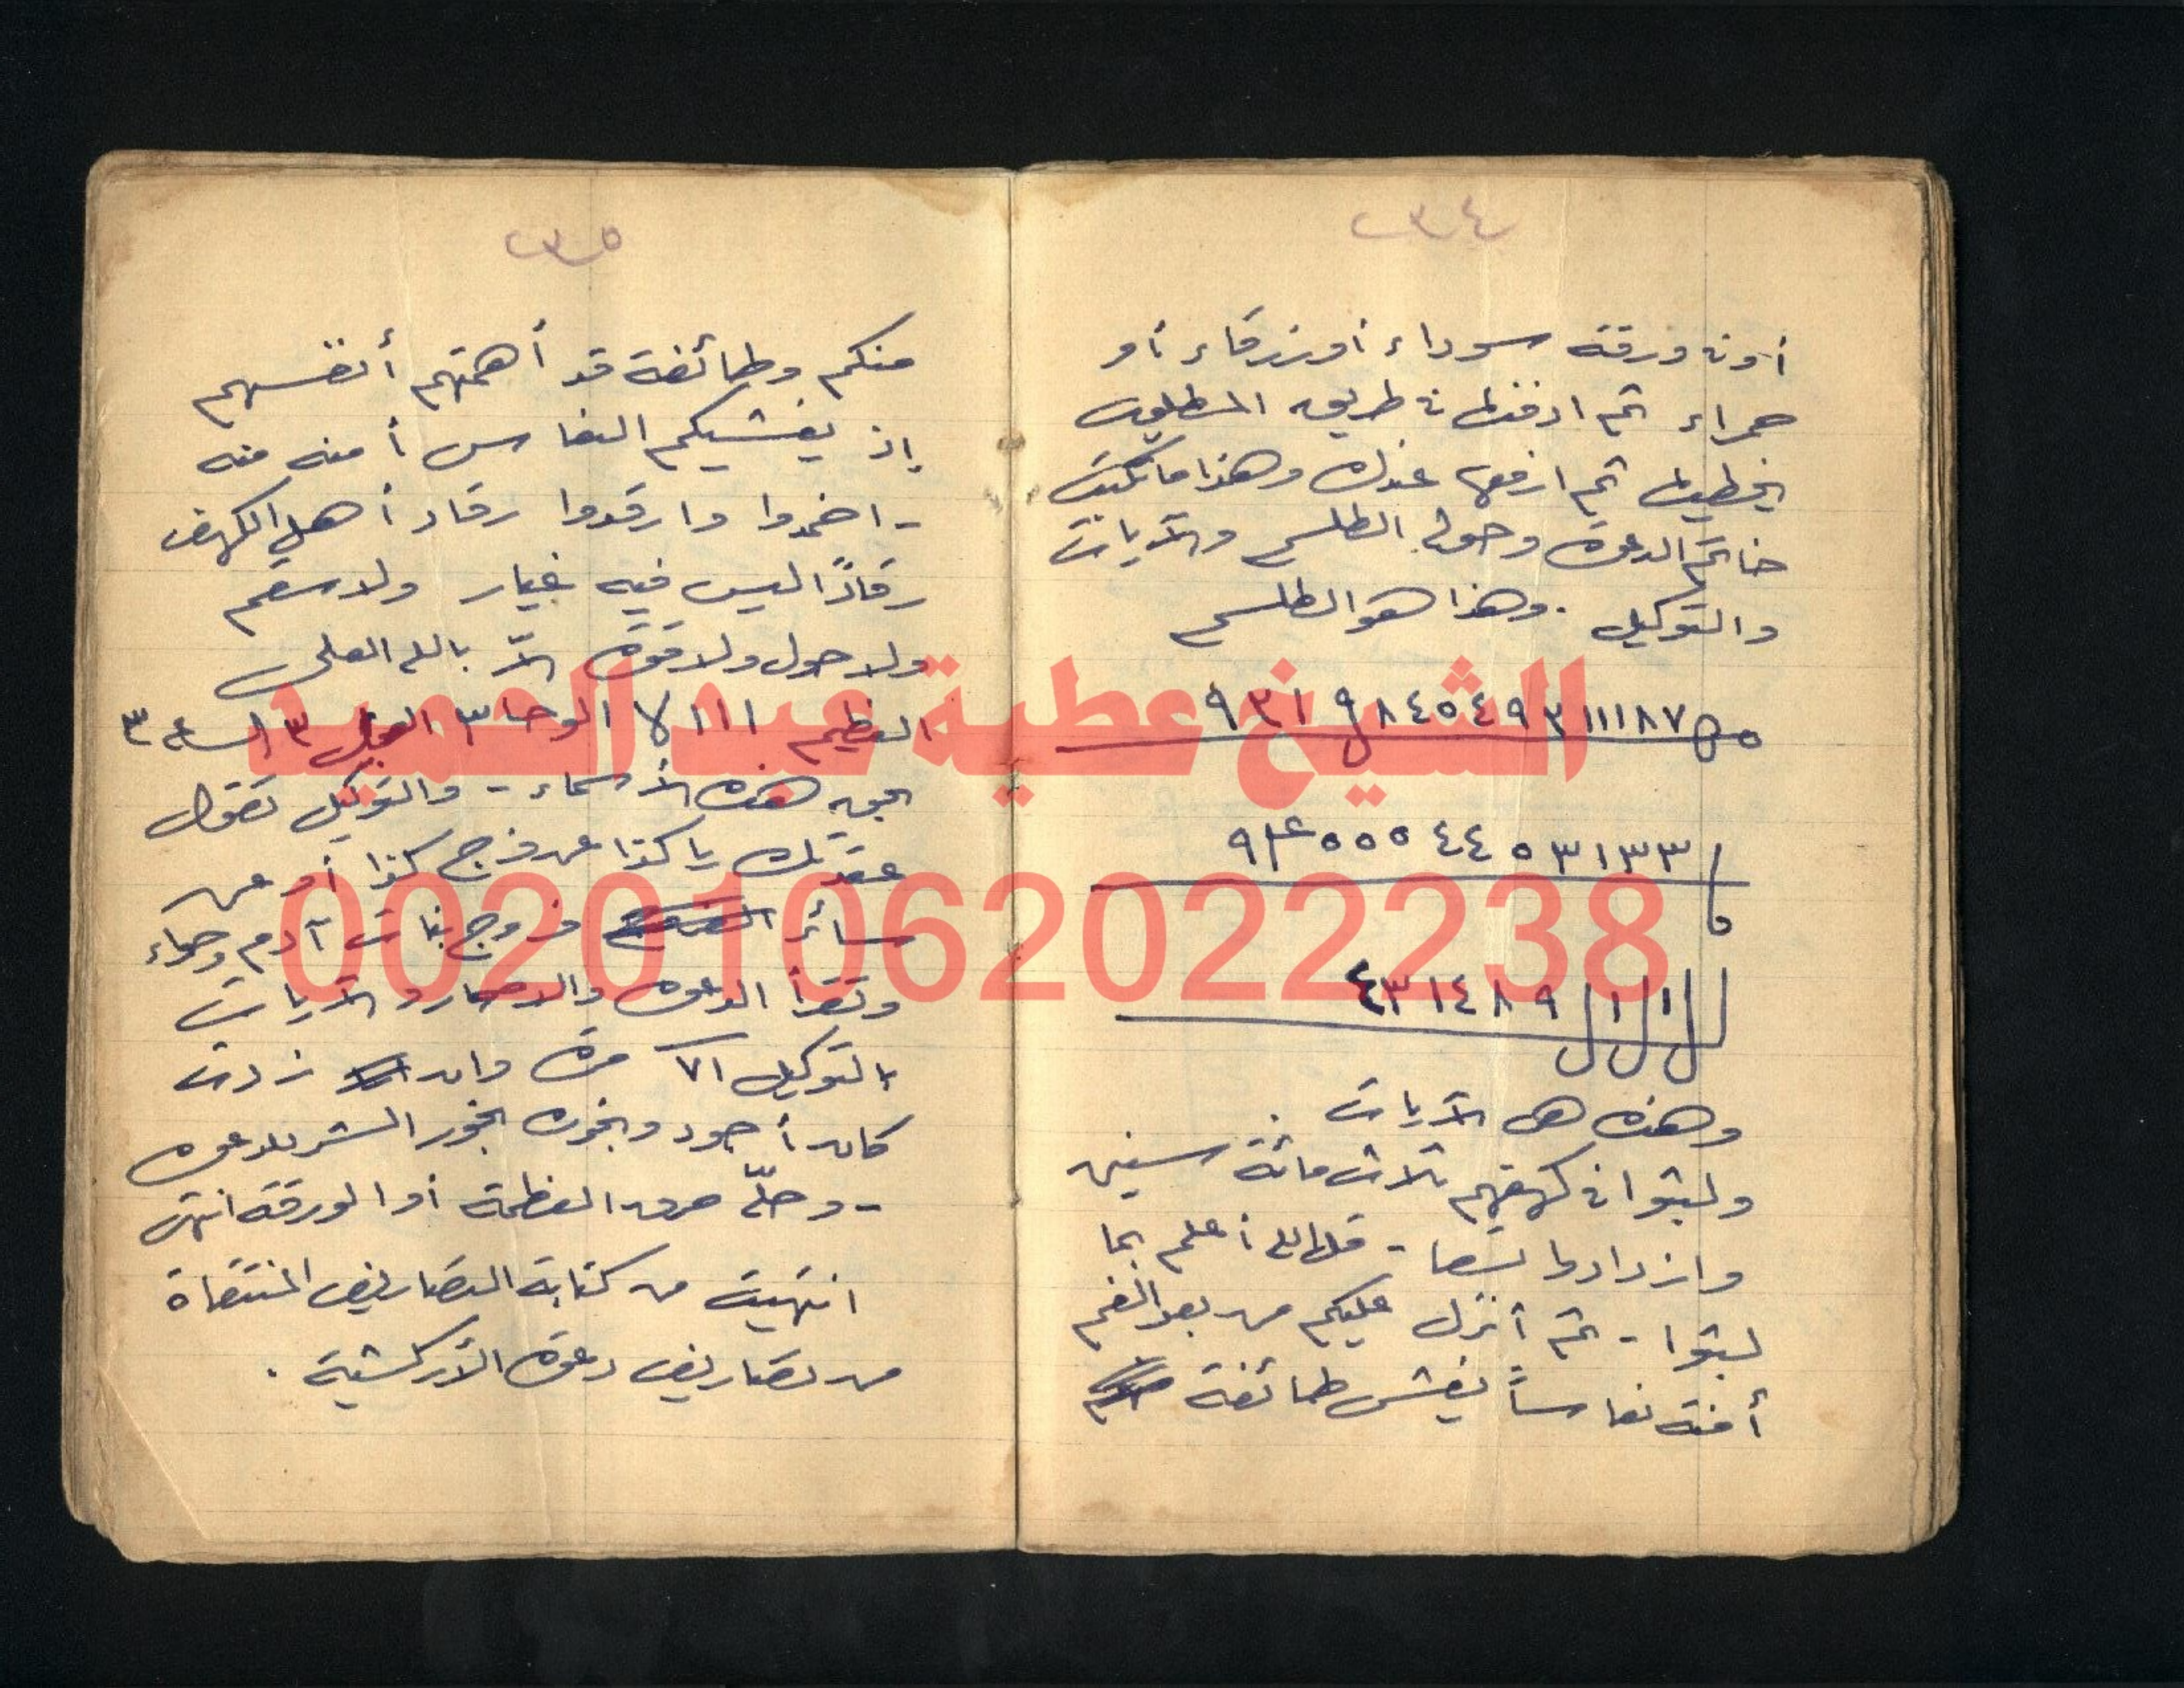 ٣٤
أو في ورقة سوداء أو زرقاء أو
حمراء ثم ادفنها في طريق المطلوب
يخطيها ثم ارفعها عندك وهذا ما تكتب
خاتم الدعوة وحوله الطلسم والآيات
والتوكيل . وهذا هو الطلسم
٨٧ ١١١ ٣ ٩ ٤ ٥ ٤ ٨ ٩ ١ ٣ ٩
٣ ٣ ١ ٣ ٥ ٤ ٤ ٥ ٥ ٥
٩ ٨ ٤ ١ ٣ ٤
وهذه هى الآيات .
ولبثوا في كهفهم ثلاث مائة سنين
وازدادوا تسعا - قل الله أعلم بما
لبثوا - ثم أنزل عليكم من بعد الغم
أمنة نعاساً يغشى طائفة
٣٥
منكم وطائفة قد أهمتهم أنفسهم
إذ يغشيكم النعاس أمنه منه
- اخمدوا وارقدوا رقاد أهل الكهف
رقادًا ليس فيه غيار ولا سقم
ولا حول ولا قوة إلاّ بالله العلى
العظيم ١١١ الوحا ٣ العجل ٣ الساعه ٣
بحق هذه الأسماء - والتوكيل تقول
عقدتك يا كذا عن فرج كذا أو عن
سائر فروج بنات آدم وحواء
وتقرأ الدعوة والآيات
بالتوكيل ٢١ مرة وان زدت
كان أجود وبخوره بخور الشر للدعوه
- وحلّه حرق العظمة أو الورقة انتهى
انتهيت من كتابة التصاريف المنتقاة
من تصاريف دعوة الأركشية .
الشيخ عطية عبد الحميد
00201062022238